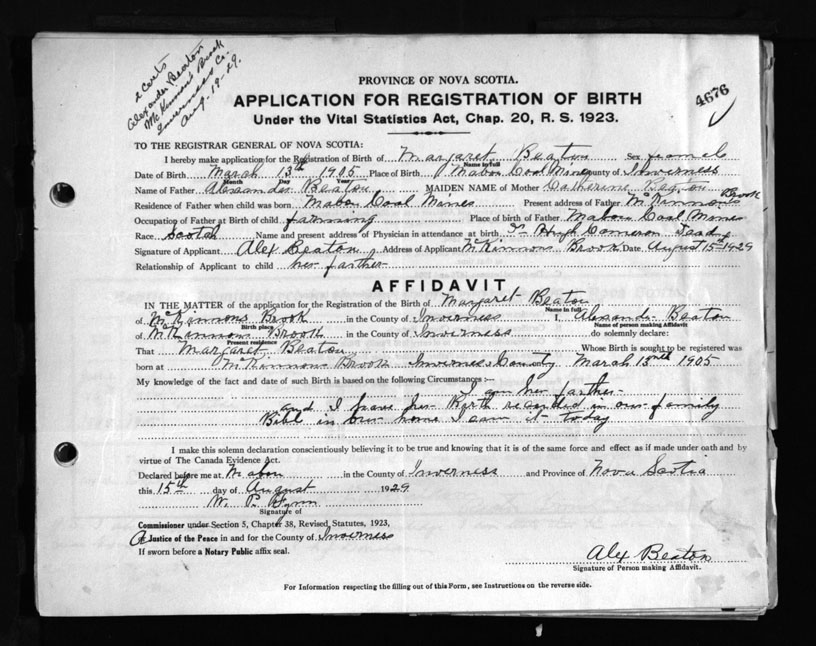 2 Certs
Alexander Beaton
McKinnons Brook
Inverness Co.
Aug-19-29.
4676
PROVINCE OF NOVA SCOTIA.
APPLICATION FOR REGISTRATION OF BIRTH
Under the Vital Statistics Act, Chap. 20, R. S. 1923.
TO THE REGISTRAR GENERAL OF NOVA SCOTIA:
I hereby make application for the Registration of Birth of Margaret Beaton Sex female
Name in full
Date of Birth March 13th 1905 Place of Birth Mabou Coal Mines County of Inverness
Month Day Year
Name of Father Alexander Beaton MAIDEN NAME of Mother Catherine
Residence of Father when child was born Mabou Coal Mines Present address of Father McKinnons Brook
Occupation of Father at Birth of child farming Place of birth of Father Mabou Coal Mines
Race Scotch Name and present address of Physician in attendance at birth Dr Hugh Cameron Dead
Signature of Applicant Alex Beaton Address of Applicant McKinnons Brook Date August 15th 1929
Relationship of Applicant to child her farther
AFFIDAVIT
IN THE MATTER of the application for the Registration of the Birth of Margaret Beaton
Name in full
of McKinnons Brook in the County of Inverness I, Alexander Beaton
Birth place Name of person making Affidavit
of McKinnons Brook in the County of Inverness do solemnly declare:
Present residence
That Margaret Beaton Whose Birth is sought to be registered was
born at McKinnons Brook Inverness County March 13th 1905
My knowledge of the fact and date of such Birth is based on the following Circumstances :—
I am her farther
and I have her Birth recorded in our family
Bibl in our home I saw it today
I make this solemn declaration conscientiously believing it to be true and knowing that it is of the same force and effect as if made under oath and by
virtue of The Canada Evidence Act.
Declared before me at Mabou in the County of Inverness and Province of Nova Scotia
this 15th day of August 1929
W. P.
Signature of
Commissioner under Section 5, Chapter 38, Revised Statutes, 1923,
A Justice of the Peace in and for the County of Inverness
If sworn before a Notary Public affix seal.
Alex Beaton
Signature of Person making Affidavit.
For Information respecting the filling out of this Form, see Instructions on the reverse side.